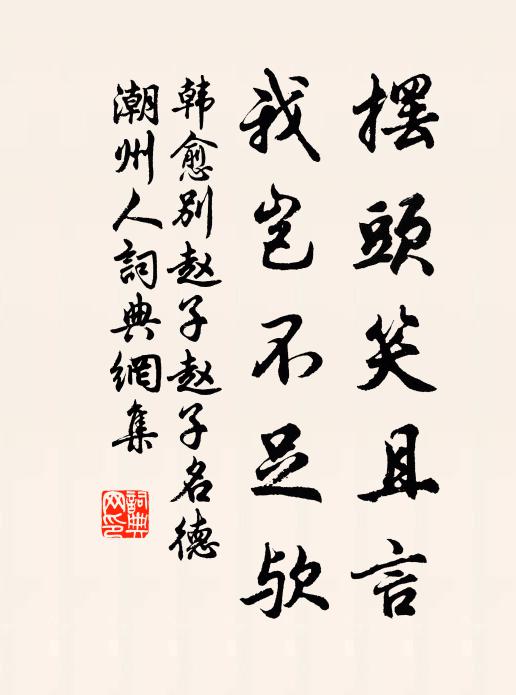 擺頭笑且言
我豈不足欤
韩愈别赵子赵子名德
潮州人詞典網集
詞典
网印